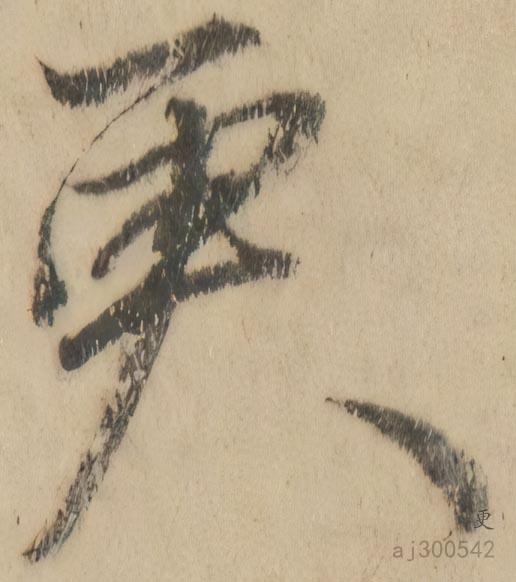 更
更
aj300542